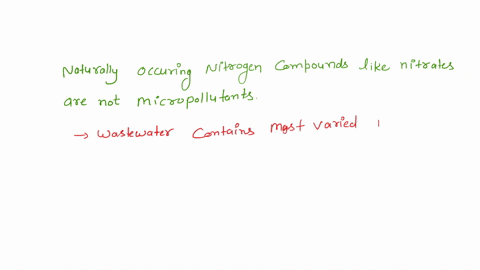 Naturally occuring Nitrogen Compounds like nitrates
are not micropollutants.
→ Wastewater Contains most varied